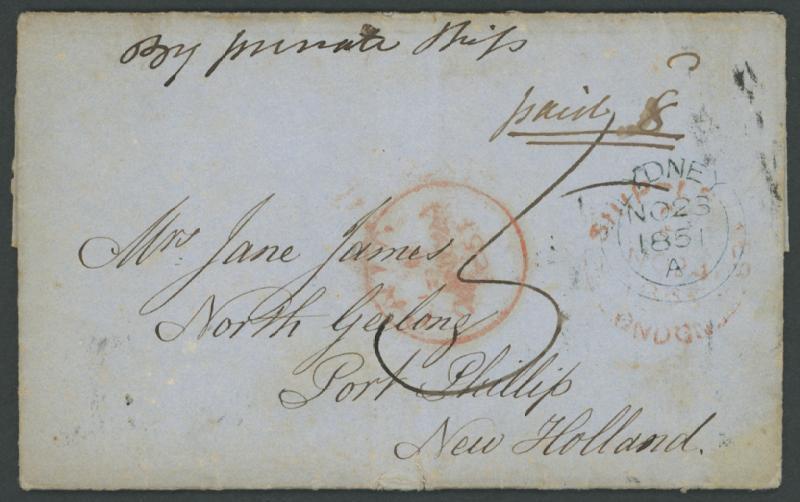 By private Ship
paid 8
5
SYDNEY
NO 23
1851
A
SHIP
LONDON
Mrs Jane James
North Geelong
Port Phillip
New Holland.